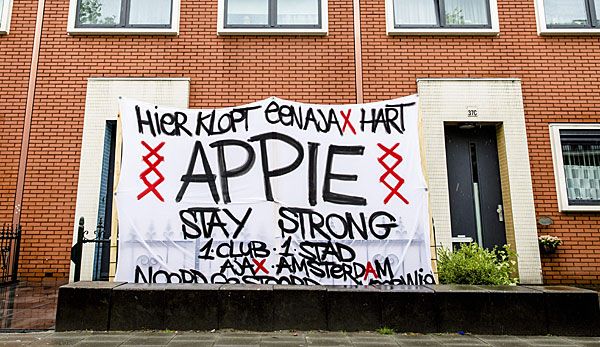 37C
HIER KLOPT EEN AJAX HART
XXX APPIE XXX
STAY STRONG
1 CLUB · 1 STAD
AJAX · AMSTERDAM
NOORD